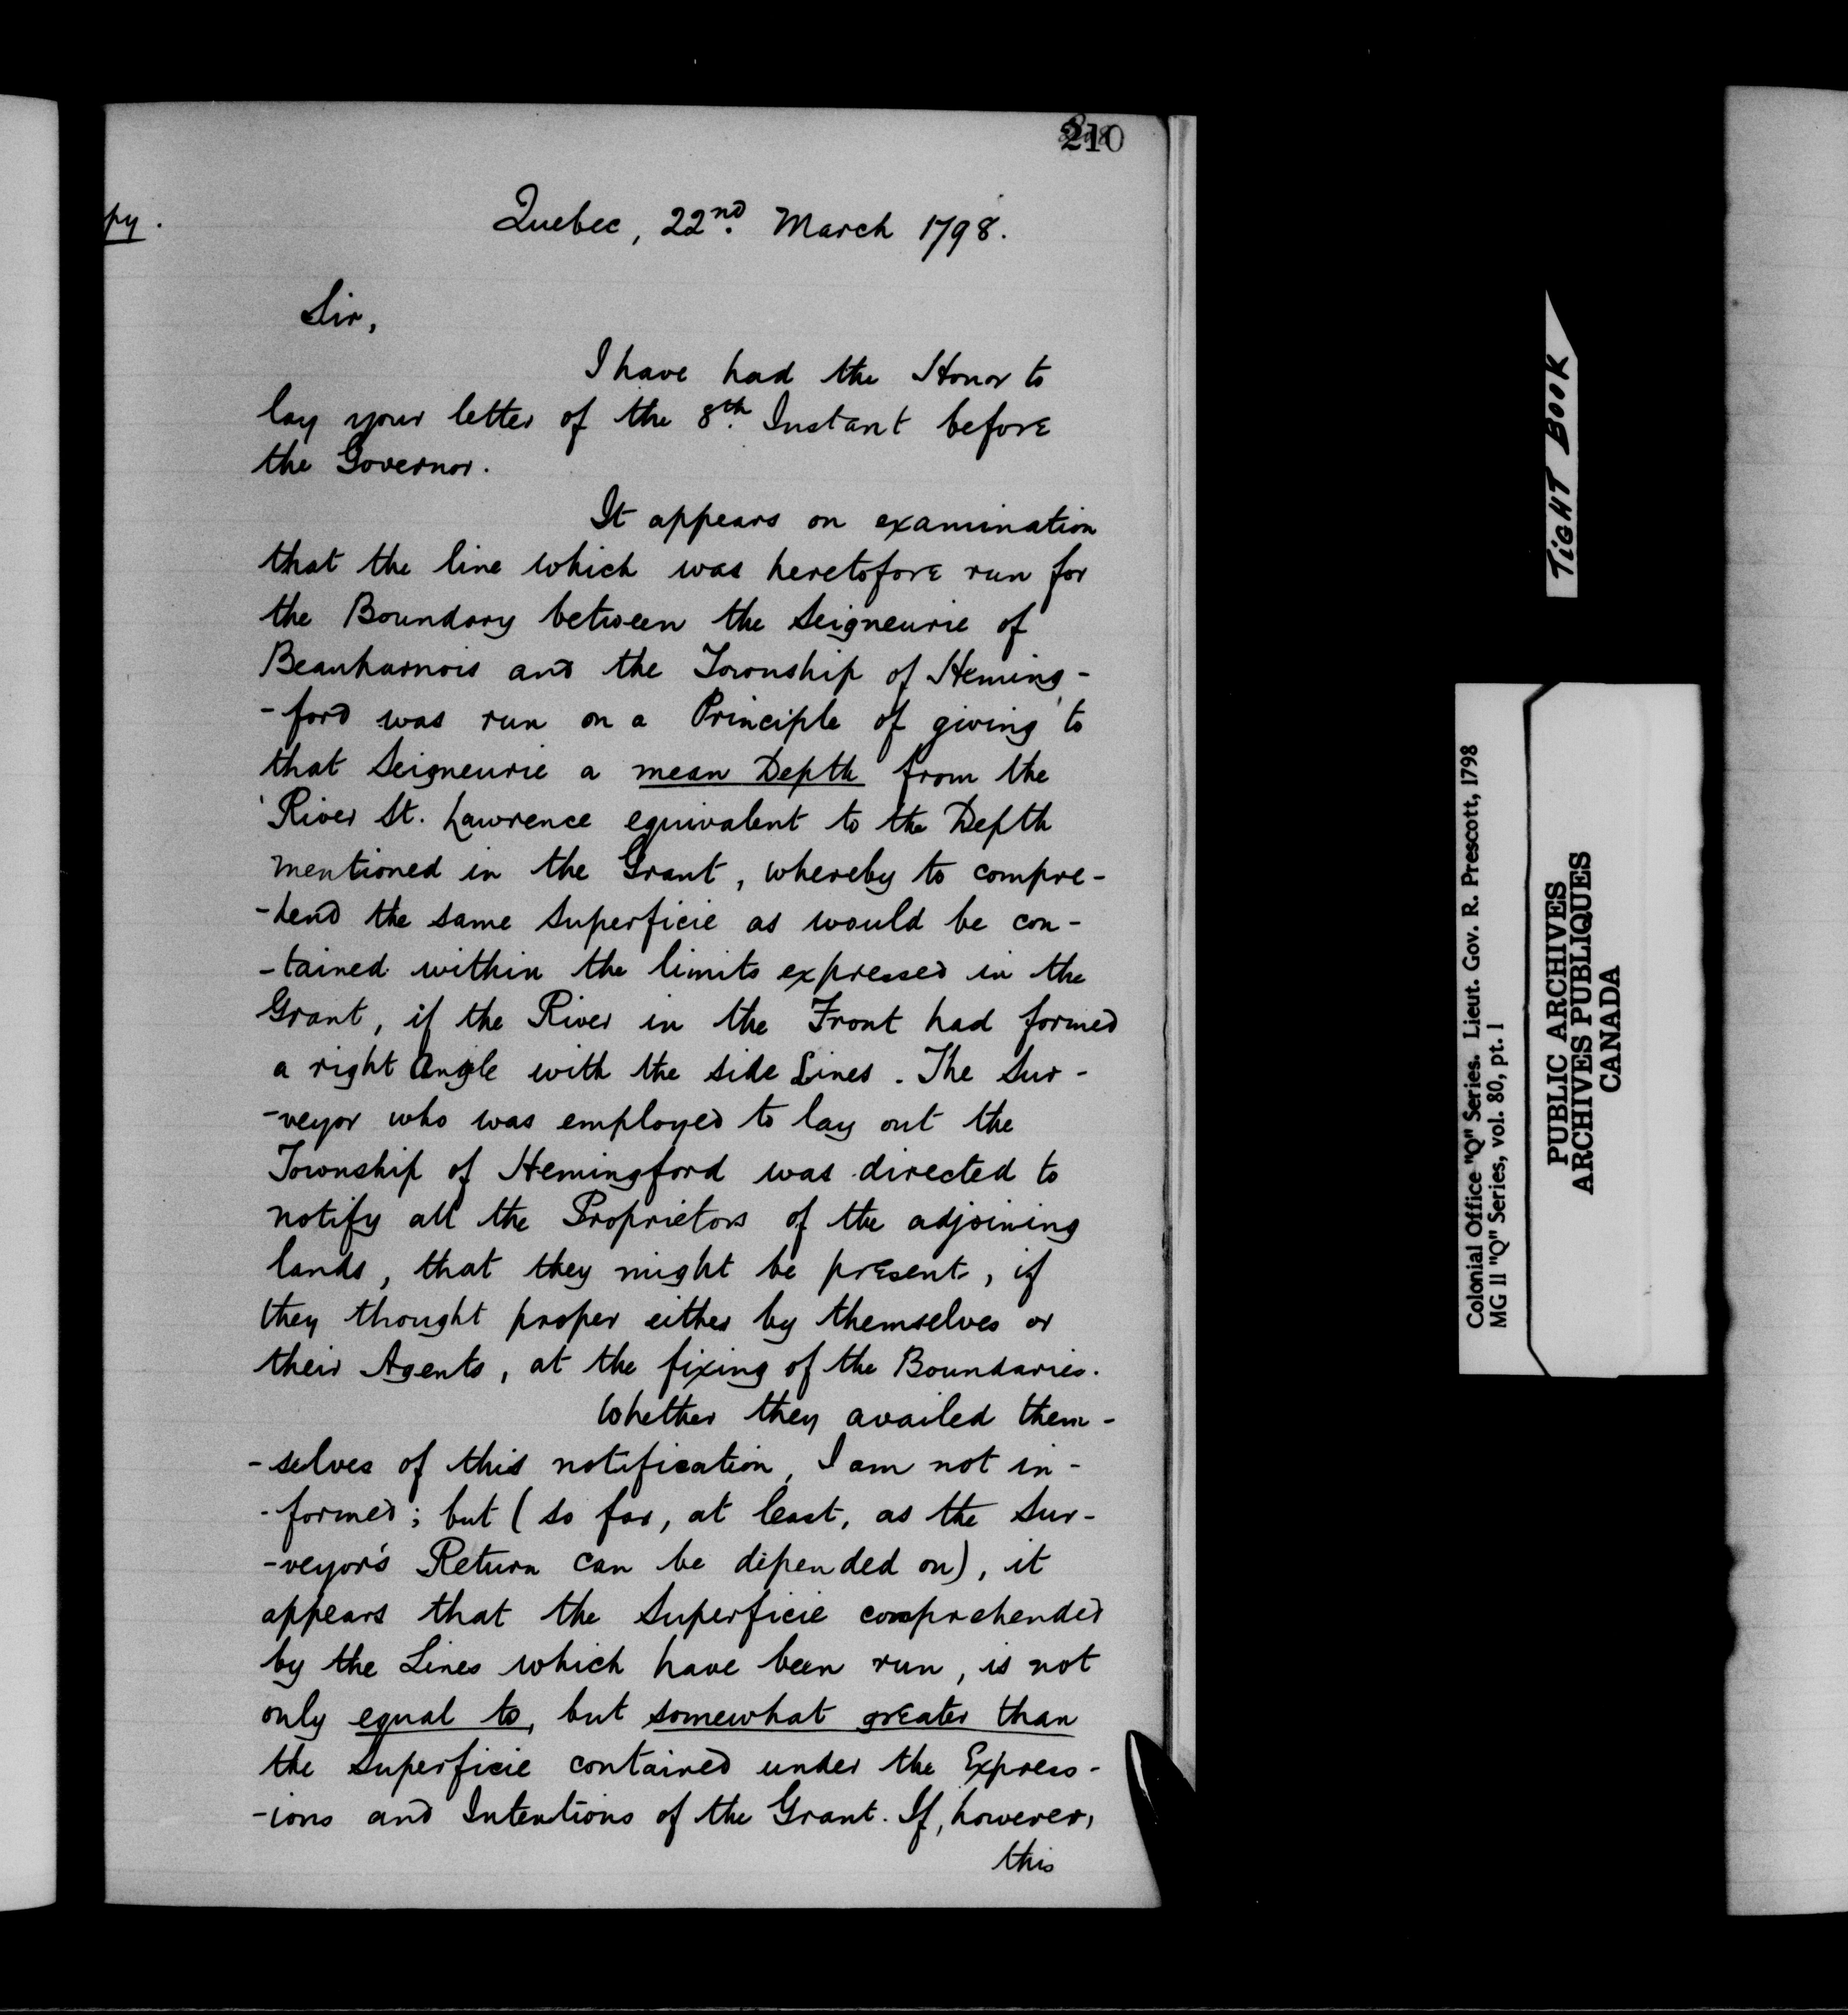 210
py.
Quebec, 22nd. March 1798.
Sir,
I have had the Honor to
lay your letter of the 8th. Instant before
the Governor.
It appears on examination
that the line which was heretofore run for
the Boundary between the Seigneurie of
Beauharnois and the Township of Heming-
-ford was run on a Principle of giving to
that Seigneurie a mean Depth from the
River St. Lawrence equivalent to the Depth
mentioned in the Grant, whereby to compre-
-hend the same Superficie as would be con-
-tained within the limits expressed in the
Grant, if the River in the Front had formed
a right Angle with the side Lines. The Sur-
-veyor who was employed to lay out the
Township of Hemingford was directed to
notify all the Proprietors of the adjoining
lands, that they might be present, if
they thought proper either by themselves or
their Agents, at the fixing of the Boundaries.
Whether they availed them-
-selves of this notification, I am not in-
-formed; but (so far, at least, as the Sur-
-veyor's Return can be depended on), it
appears that the Superficie comprehended
by the Lines which have been run, is not
only equal to, but somewhat greater than
the Superficie contained under the Express-
-ions and Intentions of the Grant. If, however,
this
TIGHT BOOK
Colonial Office "Q" Series. Lieut. Gov. R. Prescott, 1798
MG 11 "Q" Series, vol. 80, pt. 1
PUBLIC ARCHIVES
ARCHIVES PUBLIQUES
CANADA